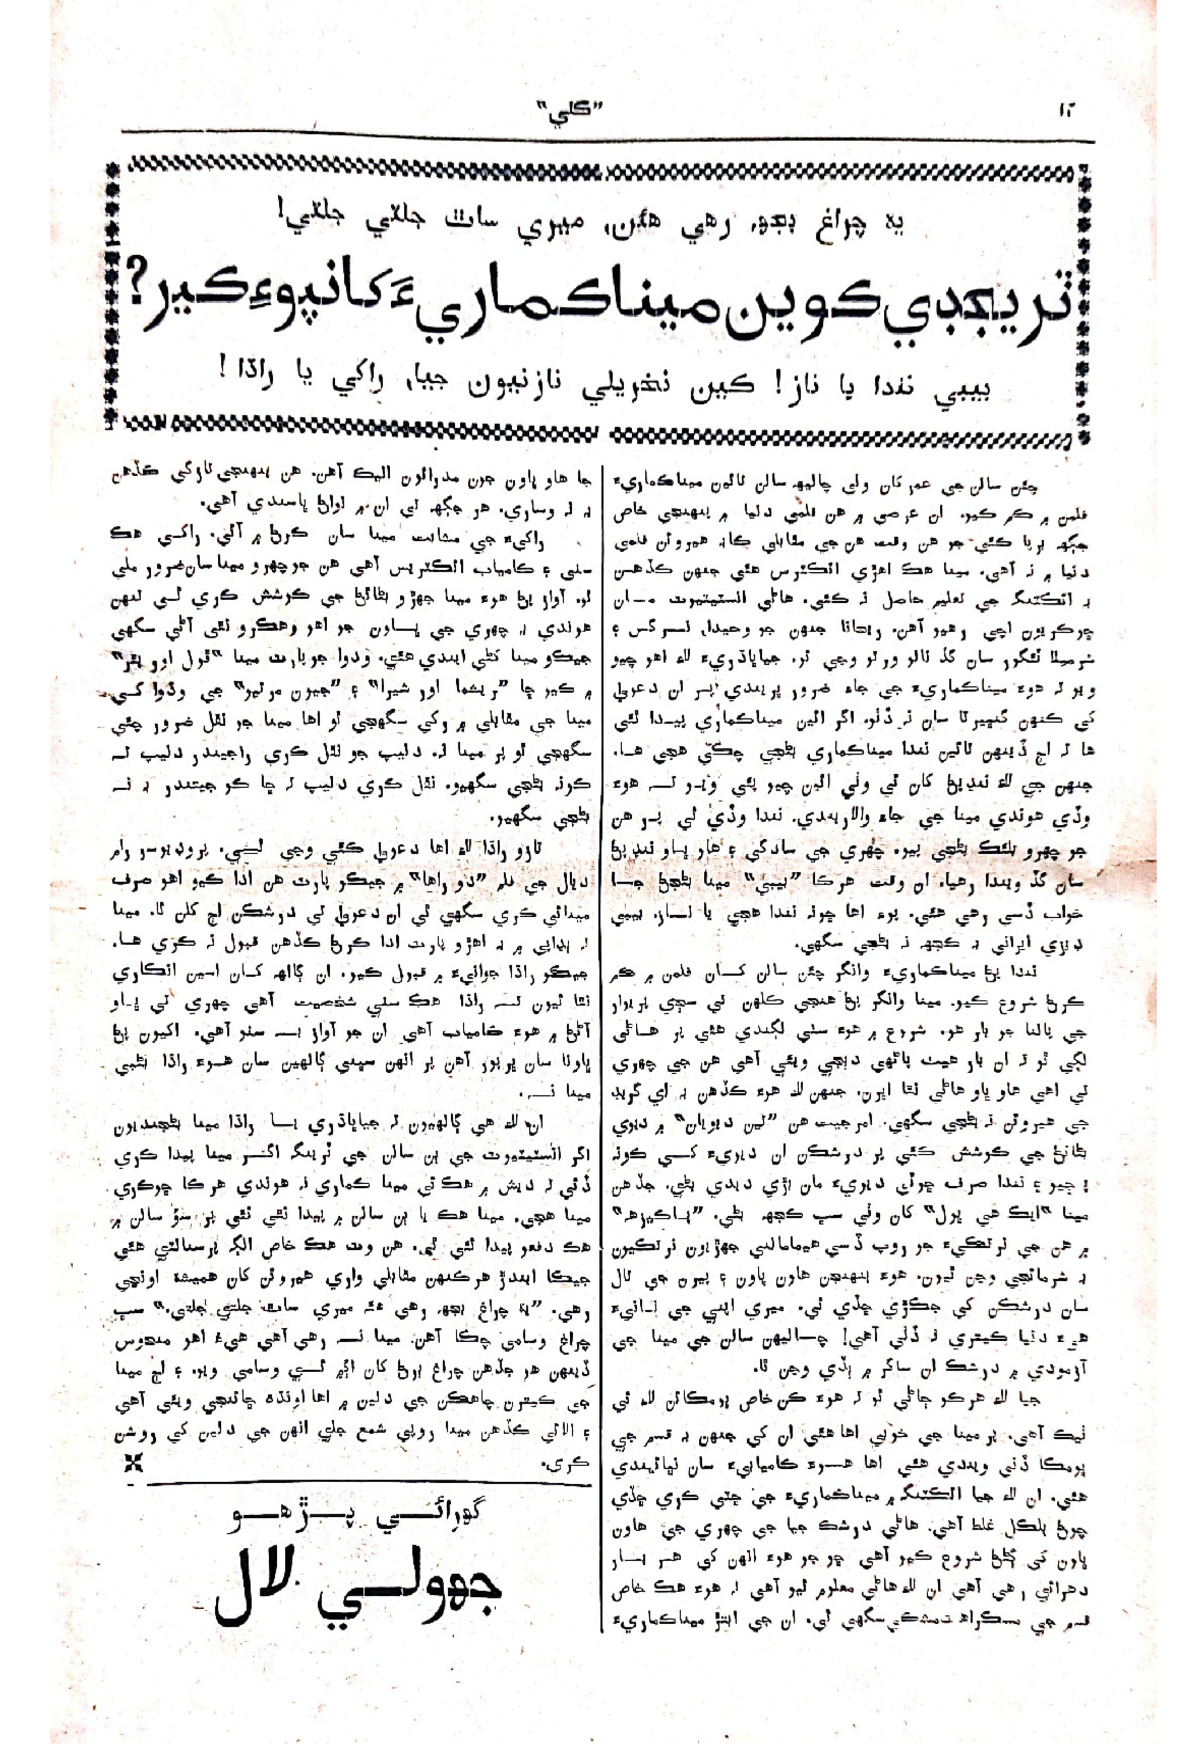 ۱۲
"ڪلي"
يہ چراغ بجھ رهي هئن، ميري ساٿ جلتي جلتي!
ٽريجڊي ڪوين ميناڪماريءَ کانپوءِ ڪير؟
بيبي نندا يا ناز! ڪين نخريلي نازنيون جيا، راکي يا راڌا!
ڇئن سالن جي عمر کان وٺي چاليهہ سالن تائين ميناڪماريءَ
فلمن ۾ ڪم ڪيو. ان عرصي ۾ هن فلمي دنيا ۾ پنهنجي خاص
جڳهہ برپا ڪئي جو هن وقت هن جي مقابلي ڪا بہ هيروئن فلمي
دنيا ۾ نہ آهي. مينا هڪ اهڙي ائڪٽرس هئي جنهن ڪڏهن
بہ ائڪٽنگ جي تعليم حاصل نہ ڪئي. هاڻي انسٽيٽيوٽ مان
ڇوڪريون اچي رهيو آهن. ريحانا جنهن جو وحيدا، نرگس ۽
شرميلا ٽئگور سان گڏ نالو ورتو وڃي ٿو. جياڀاڌريءَ لاءِ اهو چيو
ويو تہ هوءَ ميناڪماريءَ جي جاءِ ضرور ڀريندي پر ان دعويٰ
کي ڪنهن گنڀيرتا سان نہ ڏٺو. اگر ائين ميناڪماري پيدا ٿئي
ها تہ اڄ ڏينهن تائين نندا ميناڪماري بڻجي چڪي هجي ها.
جنهن جي لاءِ ننڍپڻ کان ئي وٺي ائين چيو پئي ويو تہ هوءَ
وڏي هوندي مينا جي جاءِ والاريندي. نندا وڏي ٿي پر هن
جو چهرو بلڪ بڻجي پيو. چهري جي سادگي ۽ هاوَ ڀاوَ ننڍپڻ
سان گڏ ويندا رهيا. ان وقت هرڪا "بيبي" مينا بڻجڻ جا
خواب ڏسي رهي هئي. پوءِ اها چوتہ نندا هجي يا ناز. بيبي
ڊيزي ايراني بہ ڪجهہ نہ بڻجي سگهي.
نندا پڻ ميناڪماريءَ وانگر ڇئن سالن کان فلمن ۾ ڪم
ڪرڻ شروع ڪيو. مينا وانگر پڻ هنجي ڪلهن تي سڄي پريوار
جي پالنا جو بار هو. شروع ۾ هوءَ سٺي لڳندي هئي پر هاڻي
لڳي ٿو تہ ان بار هيٺ پاڻهي دٻجي ويئي آهي هن جي چهري
تي اهي هاوَ ڀاوَ هاڻي نٿا اچن. جنهن لاءِ هوءَ ڪڏهن بہ اي گريڊ
جي هيروئن نہ بڻجي سگهي. امرجيت هن "تين ديويان" ۾ ديوي
بڻائڻ جي ڪوشش ڪئي پر درشڪن ان ديويءَ کسي ڪونہ
پڄيو ۽ نندا صرف ڇوٽي ديويءَ مان بڙي ديدي بڻي. جڏهن
مينا "ايڪ هي ڀول" کان وٺي سڀ ڪجهہ بڻي. "پاڪيزهہ"
۾ هن جي نرتڪيءَ جو روپ ڏسي هيمامالني جهڙيون نرتڪيون
بہ شرمائجي وڃن ٿيون. هوءَ پنهنجن هاون ڀاون ۽ پيرن جي تال
سان درشڪن کي جڪڙي ڇڏي ٿي. ميري اپني جي نمائيءَ
هيءَ دنيا ڪيتري نہ ڏٺي آهي! چاليهن سالن جي مينا جي
آزمودي ۾ درشڪ ان ساگر ۾ ٻڏي وڃن ٿا.
جيا لاءِ هرڪو ڄاڻي ٿو تہ هوءَ ڪن خاص ڀومڪائن لاءِ ئي
ٺيڪ آهي. پر مينا جي خوبي اها هئي ان کي جنهن بہ قسم جي
ڀومڪا ڏني ويندي هئي اها هوءَ ڪاميابيءَ سان نڀائيندي
هئي. ان لاءِ جيا ائڪٽنگ ۾ ميناڪماريءَ جي ڇٽي ڪري ڇڏي
چوڻ بلڪل غلط آهي. هاڻي درشڪ جيا جي چهري جي هاون
ڀاون کي ڳڻڻ شروع ڪيو آهي ڇو جو هوءَ انهن کي هر بار
دهرائي رهي آهي ان لاءِ هاڻي معلوم ٿيو آهي تہ هوءَ هڪ خاص
قسم جي مسڪراهٽ مشڪي سگهي ٿي. ان جي ابتڙ ميناڪماريءَ
جا هاوَ ڀاون جون مدرائون اليڪ آهن. هن پنهنجي تازگي ڪڏهن
بہ نہ وساري. هر جڳهہ تي ان ۾ نواڻ ڀاسندي آهي.
راکيءَ جي مشابت مينا سان ڪرڻ ۾ آئي. راکي هڪ
سٺي ۽ ڪامياب ائڪٽريس آهي هن جو چهرو مينا سان ضرور ملي
ٿو. آواز پڻ هوءَ مينا جهڙو بڻائڻ جي ڪوشش ڪري ٿي تنهن
هوندي بہ چهري جي ڀاون جو اهو وهڪرو نٿي آڻي سگهي
جيڪو مينا کڻي ايندي هئي. وڌوا جو پارٽ مينا "ڦول اور پٿر"
۾ ڪيو ڇا "ريشما اور شيرا" ۽ "جيون مرتيو" جي وڌوا کي
مينا جي مقابلي ۾ رکي سگهجي ٿو اها مينا جو نقل ضرور چئي
سگهجي ٿو پر مينا نہ. دليپ جو نقل ڪري راجيندر دليپ تہ
ڪونہ بڻجي سگهيو. نقل ڪري دليپ تہ ڇا ڪو جيتندر بہ نہ
بڻجي سگهيو.
تازو راڌا لاءِ اها دعويٰ ڪئي وڃي ٿي. پروڊيوسر رام
ديال جي فلم "دو راها" ۾ جيڪو پارٽ هن ادا ڪيو اهو صرف
مينا ئي ڪري سگهي ٿي ان دعويٰ تي درشڪن اڄ کلن ٿا. مينا
تہ پڊاپي ۾ بہ اهڙو پارٽ ادا ڪرڻ ڪڏهن قبول نہ ڪري ها.
جيڪو راڌا جوانيءَ ۾ قبول ڪيو. ان ڳالهہ کان اسين انڪاري
نٿا ٿيون تہ راڌا هڪ سٺي شخصيت آهي چهري تي ڀاوَ
آڻڻ ۾ هوءَ ڪامياب آهي ان جو آواز بہ سٺو آهي. اکيون پڻ
ڀاونا سان ڀرپور آهن پر انهن سڀني ڳالهين سان هوءَ راڌا بڻبي
مينا نہ.
ان لاءِ هي ڳالهيون تہ جياڀاڌري يا راڌا مينا بڻجنديون
اگر انسٽيٽيوٽ جي ٻن سالن جي ٽريننگ اگر مينا پيدا ڪري
ڏئي تہ ديش ۾ هڪ ئي مينا ڪماري نہ هوندي هرڪا ڇوڪري
مينا هجي. مينا هڪ يا ٻن سالن ۾ پيدا نٿي ٿئي پر سؤ سالن ۾
هڪ دفعو پيدا ٿئي ٿي. هن وٽ هڪ خاص الڳ پرسنالٽي هئي
جيڪا ايندڙ هر ڪنهن مقابلي واري هيروئن کان هميشہ اوٽجي
رهي. "يہ چراغ بجھ رهي هئہ ميري ساٿ جلتي جلتي." سڀ
چراغ وسامي چڪا آهن. مينا نہ رهي آهي هيءُ اهو منحوس
ڏينهن هو جڏهن چراغ ٻرڻ کان اڳ ئي وسامي ويو. ۽ اڄ مينا
جي ڪيترن چاهڪن جي دلين ۾ اها اونڌهہ ڇائنجي ويئي آهي
۽ الائي ڪڏهن مينا روپي شمع جلي انهن جي دلين کي روشن
ڪري.
گهرائي پڙهو
جهولي لال